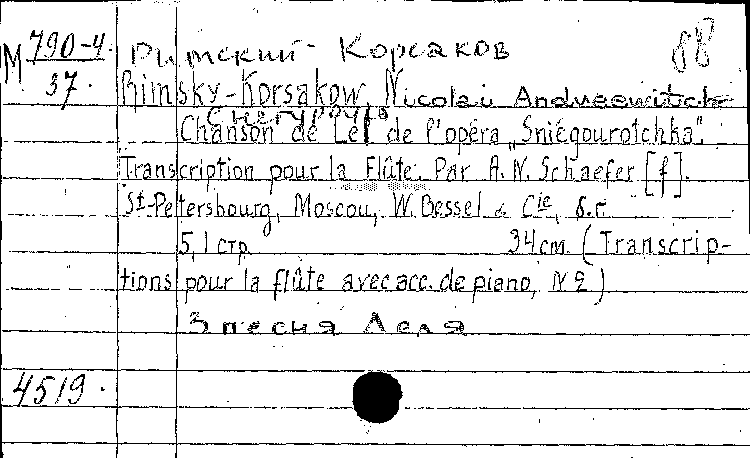 М 790-4
37.
88
Римский-Корсаков
Rimsky-Korsakow, Nicolai Andreewitch
Снегурочка
Chanson de Lel de l'opéra „Sniégourotchka".
Transcription pour la Flûte. Par A. N. Schaefer [f].
St-Petersbourg, Moscou, W. Bessel & Cie, б.г.
5,1 стр. 34 cm. (Transcrip-
tions pour la flûte avec acc. de piano, № 2)
3 песня Леля
4519.